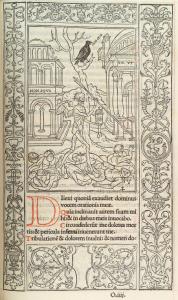 Dilexi quoniā exaudiet dominus
vocem orationis mee.
Quia inclinauit aurem suam mi
hi & in diebus meis inuocabo.
Circundederūt me dolores mor
tis & pericula inferni inuenerunt me.
Tribulationē & dolorem inueni & nomen do